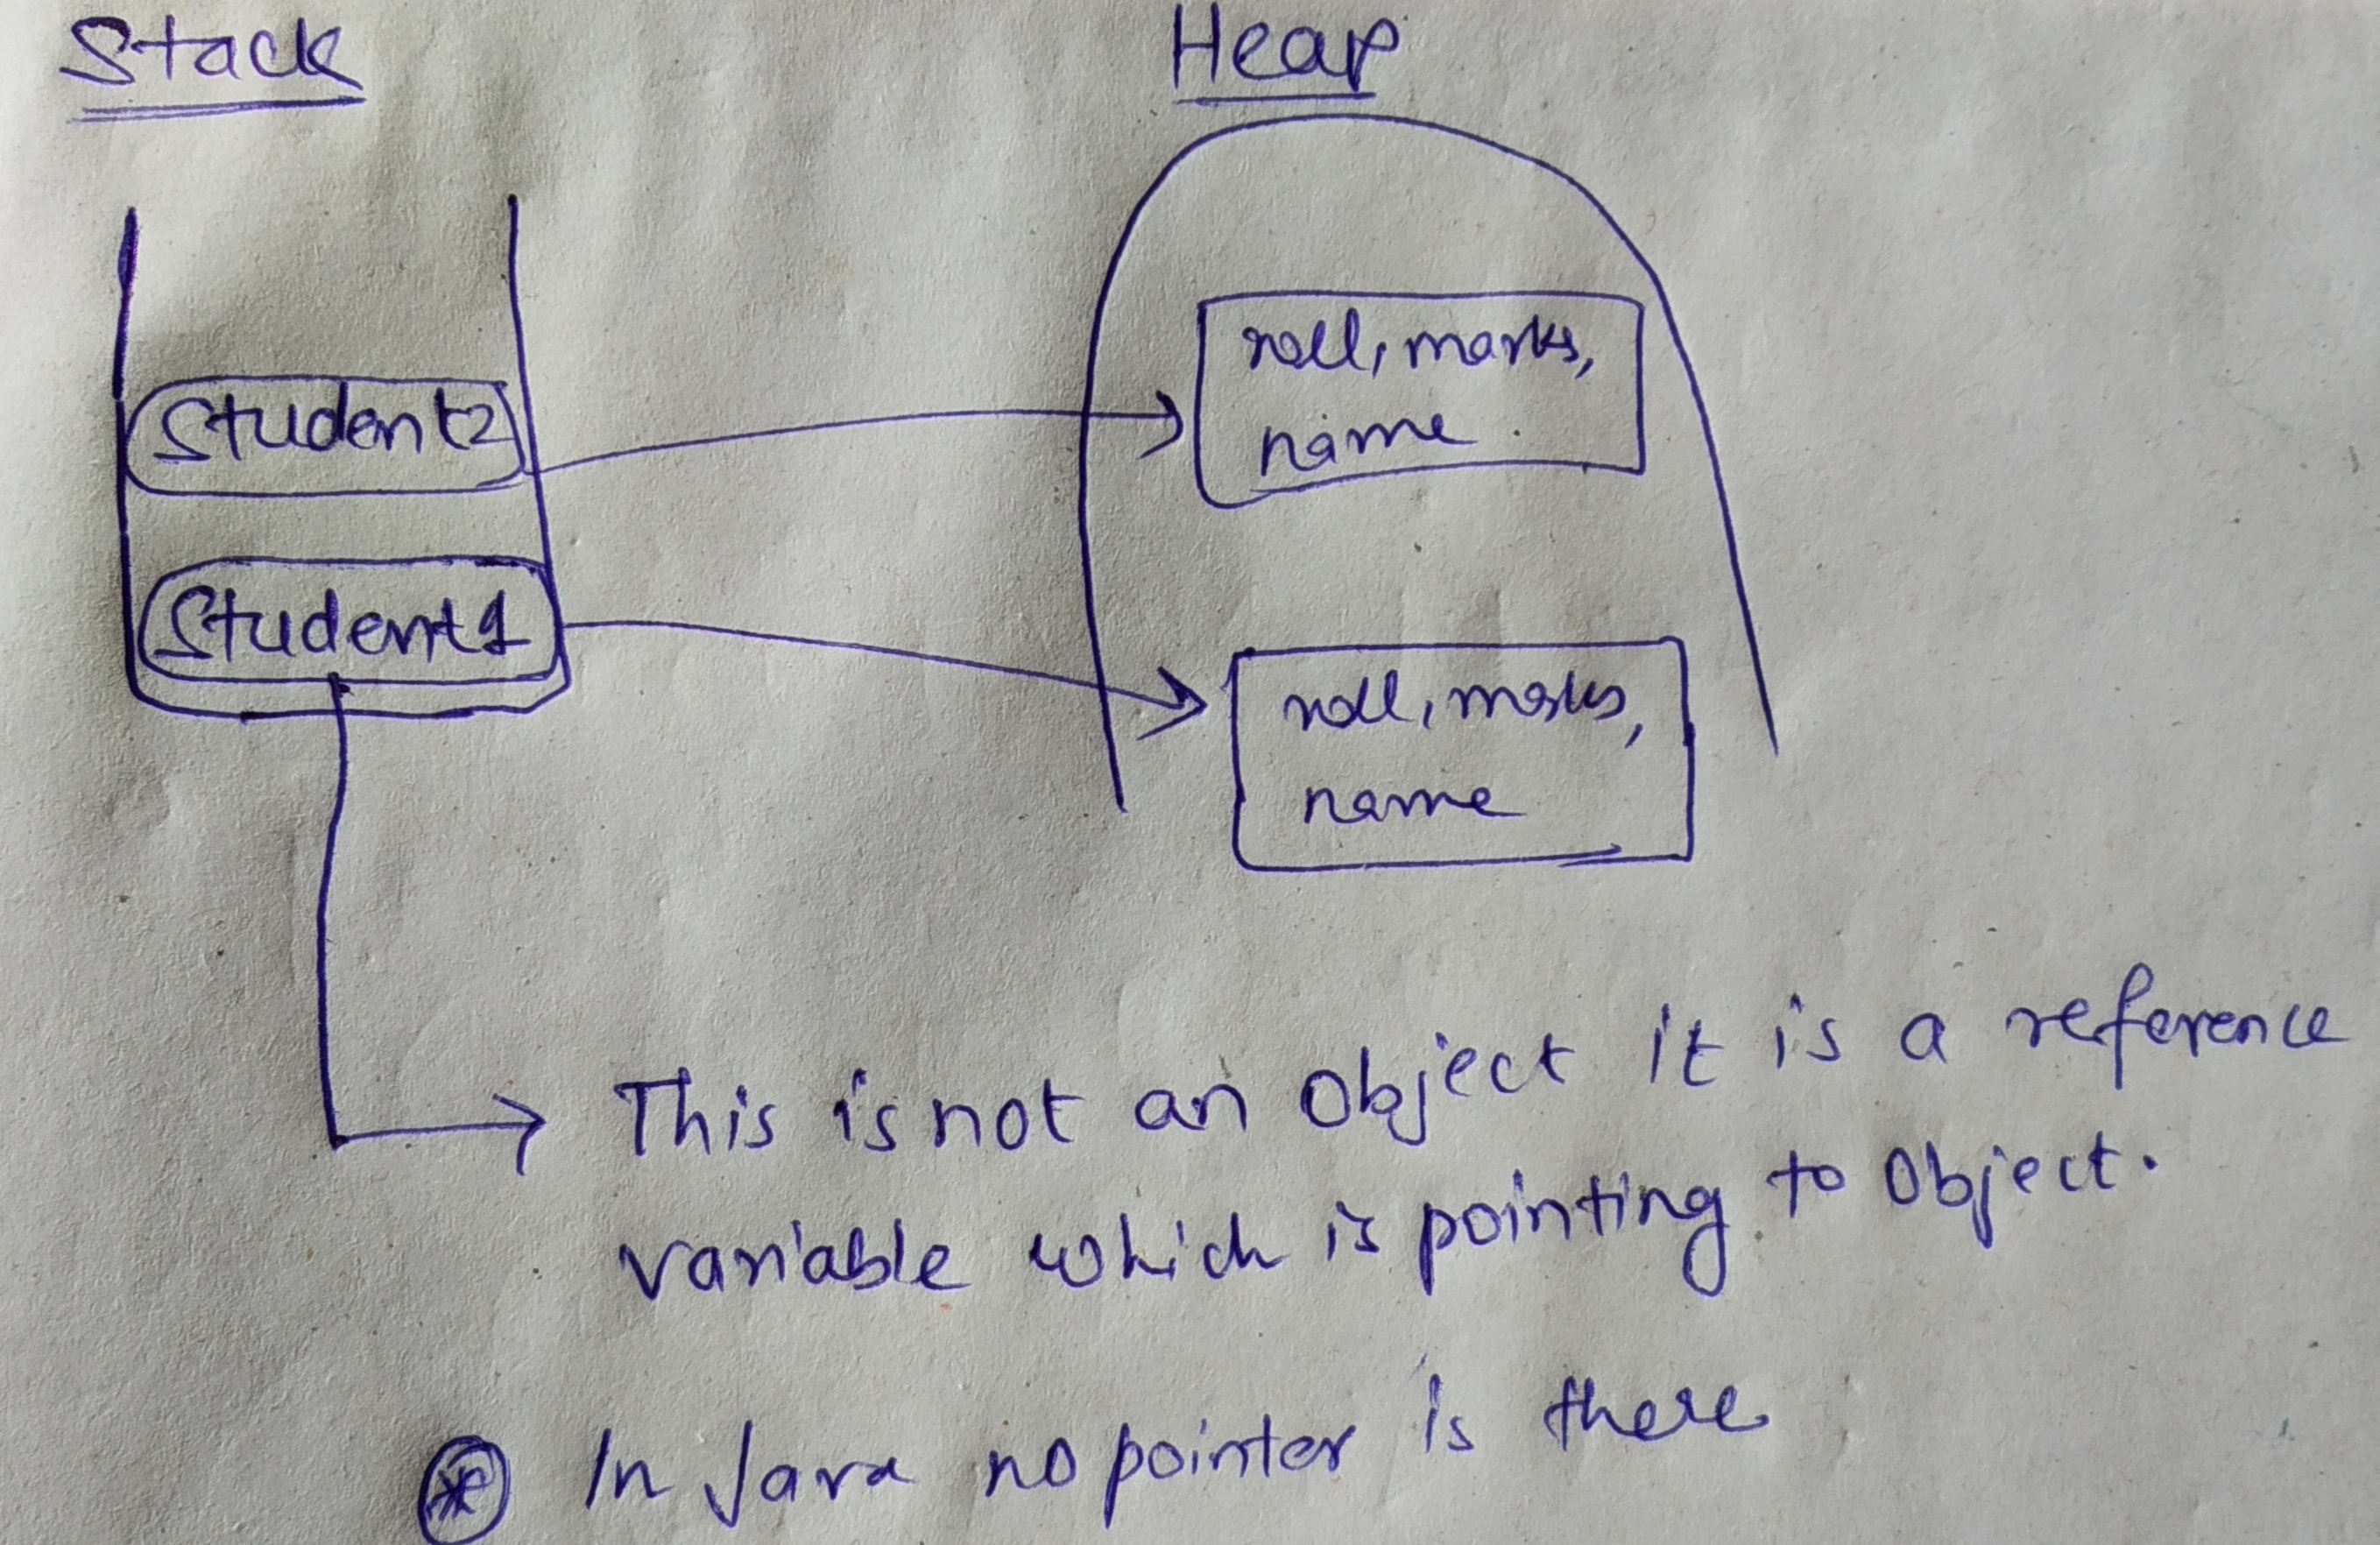 Stack
Heap
Student2
roll, marks,
name
Student1
roll, marks,
name
This is not an Object it is a reference
variable which is pointing to Object.
* In Java no pointer is there